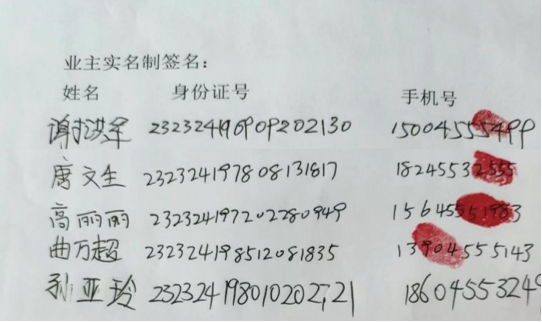 业主实名制签名：
姓名 身份证号 手机号
谢洪军 232324196909202130 15004555499
唐文生 232324197808131817 18245532535
高丽丽 232324197202280949 15645551983
曲万超 232324198512081835 13904555143
孙亚玲 232324198010202721 1860455324